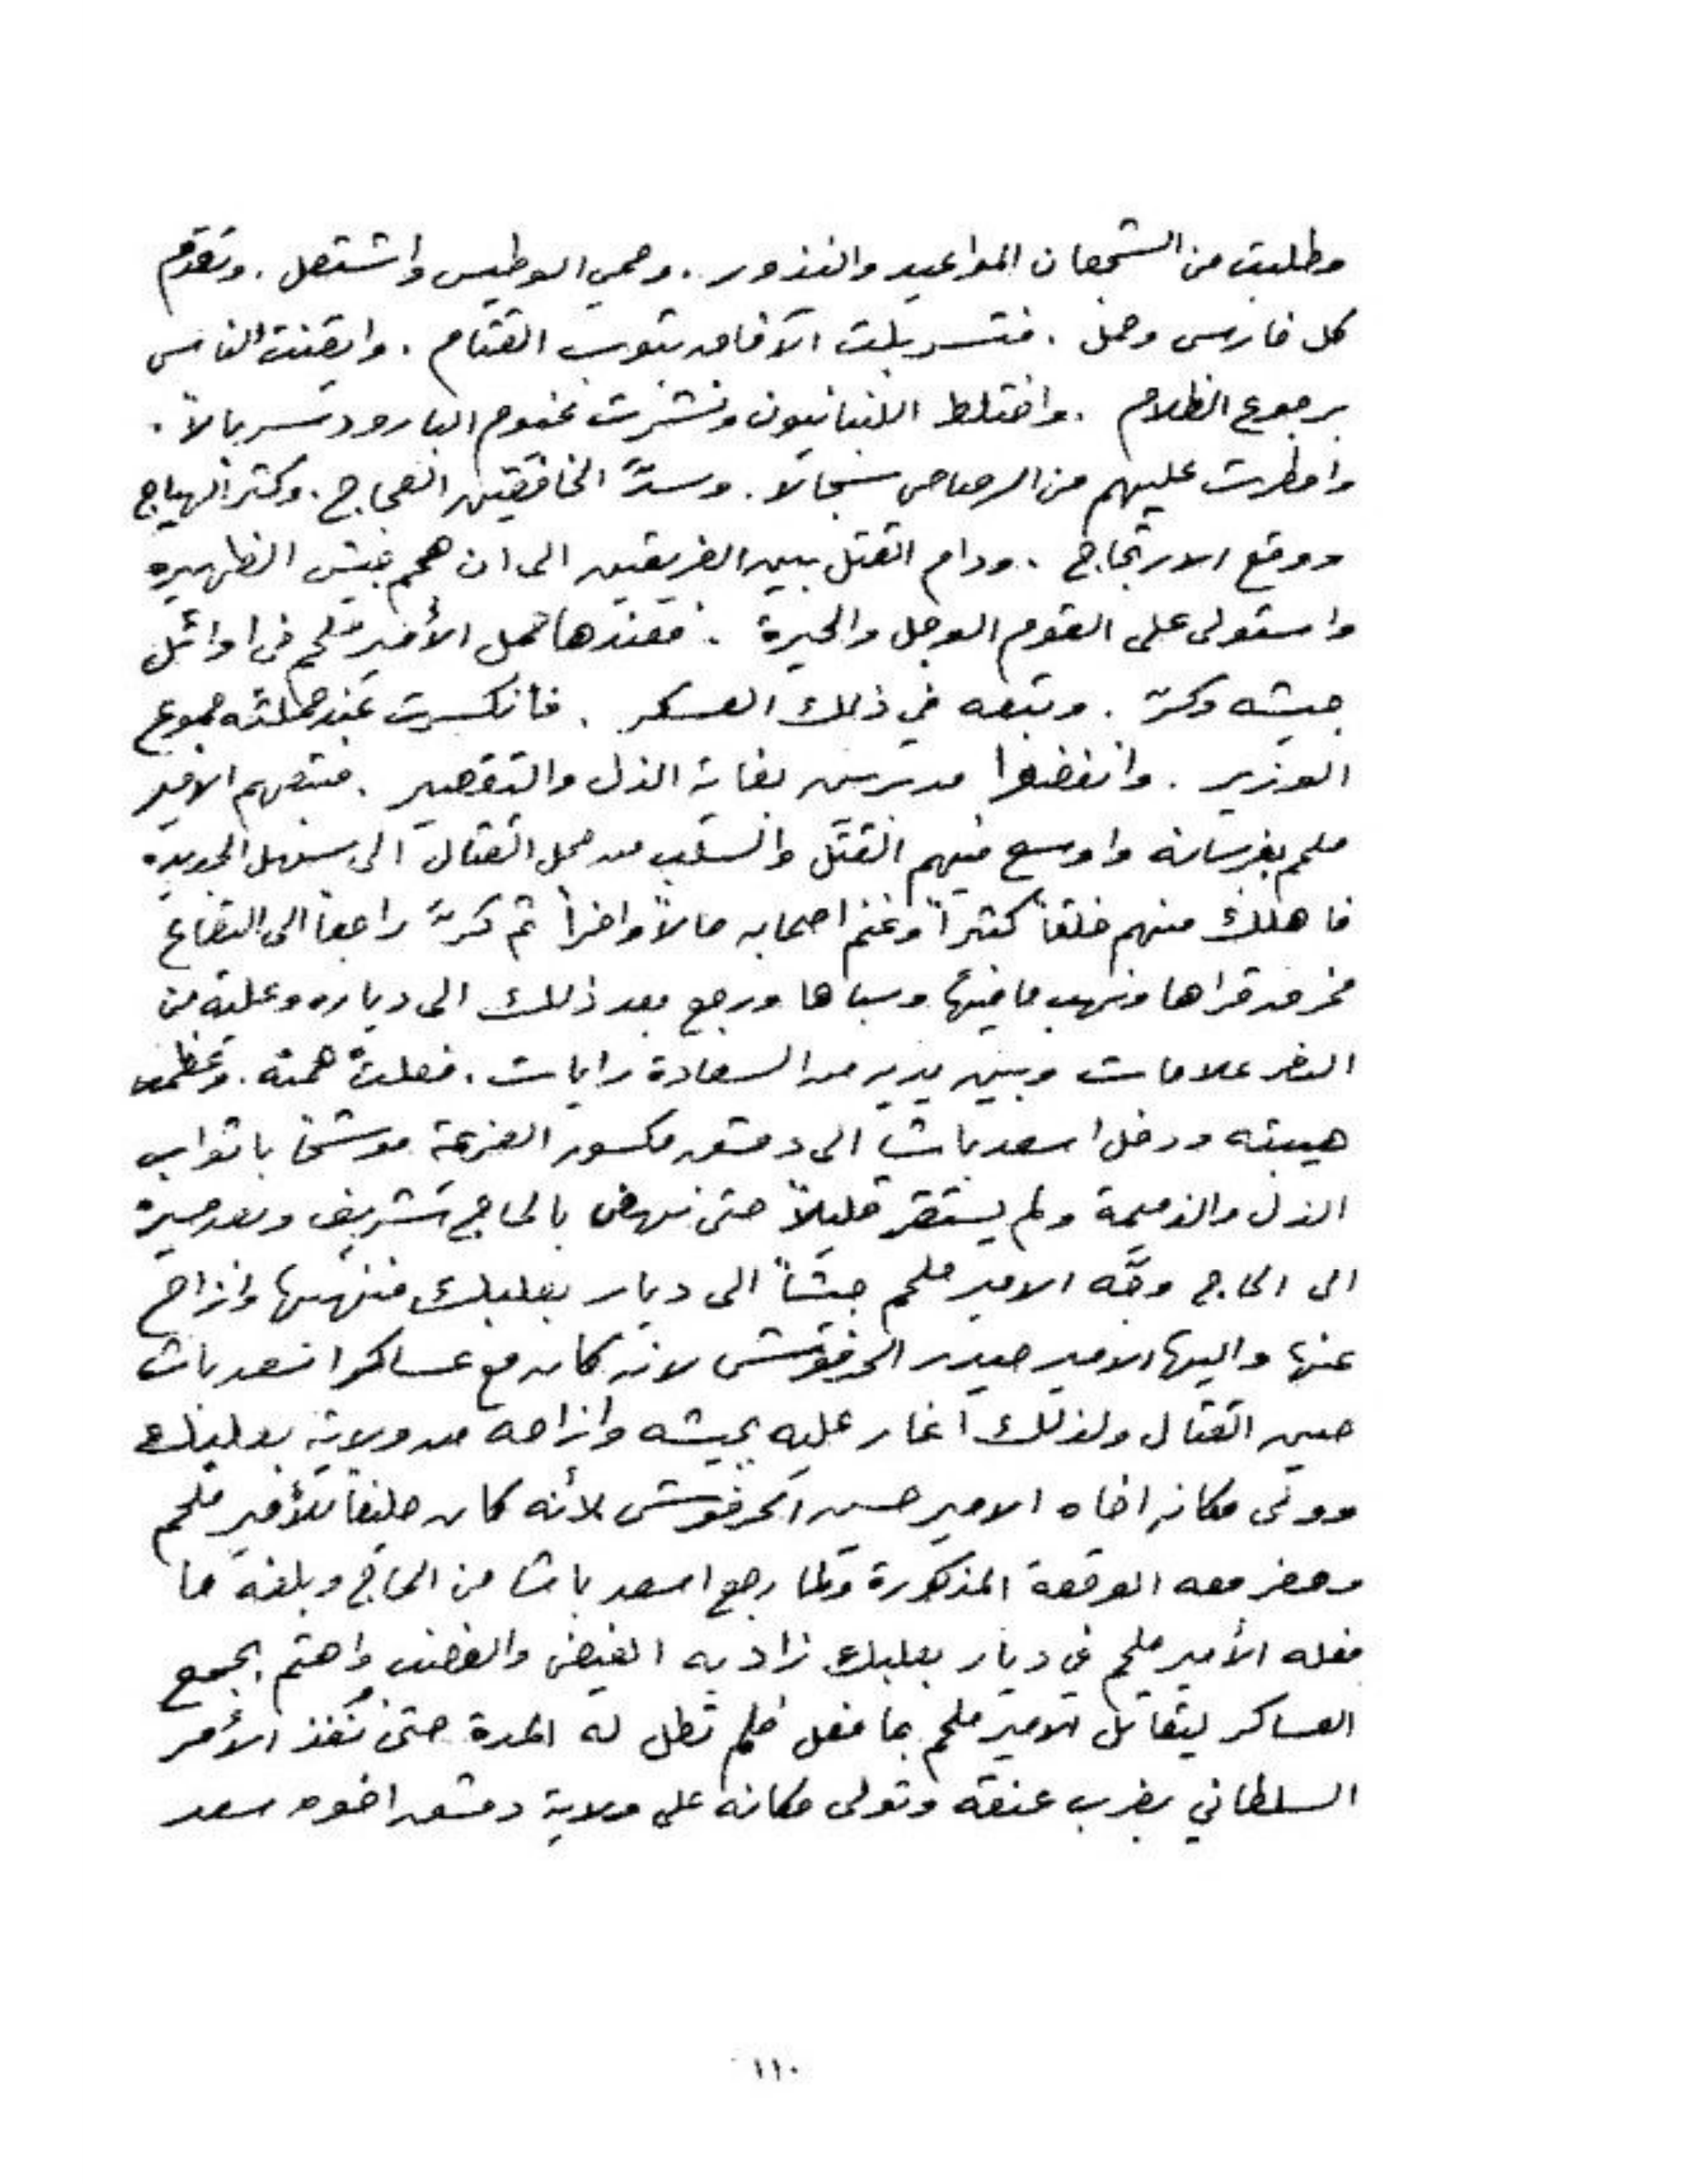 وطلبت من الشجعان المواعيد والنذور . وحمي الوطيس واشتعل . وتقدم
كل فارس وحمل . فتسربلت الآفاق بثوب القتام . وايقنت الناس
برجوع الظلام . واختلط اللبنانيون ونشرت غيوم البارود سربالاً .
وامطرت عليهم من الرصاص سجالا . وسدَّ الخافقين العجاج . وكثر الهياج
ووقع الارتجاج . ودام القتل بين الفريقين الى ان هجم جيش الظهيره
واستولى على القوم الوجل والحيرة . فعندها حمل الأمير ملحم في اوائل
جيشه وكرّ . وتبعه في ذلك العسكر . فأنكسرت عند حملته جموع
الوزير . وانفضوا مدبرين بغاية الذل والتقصير . فتبعهم الامير
ملحم بفرسانه واوسع فيهم القتل والسلب من محل القتال الى سهل الجديده
فاهلك منهم خلقاً كثيراً وغنم اصحابه مالاً وافراً ثم كرَّ راجعاً الى البقاع
فحرق قراها ونهب ما فيها وسباها ورجع بعد ذلك الى دياره وعليه من
النصر علامات وبين يديه من السعادة رايات . فعلتْ همته . وعظمت
هيبته ودخل اسعد باشا الى دمشق مكسور العزمة موشحاً باثواب
الذل والذميمة ولم يستقر قليلاً حتى نهض بالحاج شريف وبعد مسيره
الى الحاج وجَّه الامير ملحم جيشاً الى ديار بعلبك فنهبها وازاح
عنها واليها الامير حيدر الحرفوش لانه كان مع عساكر اسعد باشا
حين القتال ولذلك اغار عليه بجيشه وازاحه من ولاية بعلبك
وولى مكانه اخاه الامير حسين الحرفوش لأنه كان حليفاً للأمير ملحم
وحضر معه الوقعة المذكورة ولما رجع اسعد باشا من الحاج وبلغه ما
فعله الأمير ملحم في ديار بعلبك زاد به الغيض والغضب واهتم بجمع
العساكر ليقاتل الامير ملحم بما فعل فلم تطل له المدة حتى نُفذ الأمر
السلطاني بضرب عنقه وتولى مكانه على ولاية دمشق اخوه سعد
١١٠